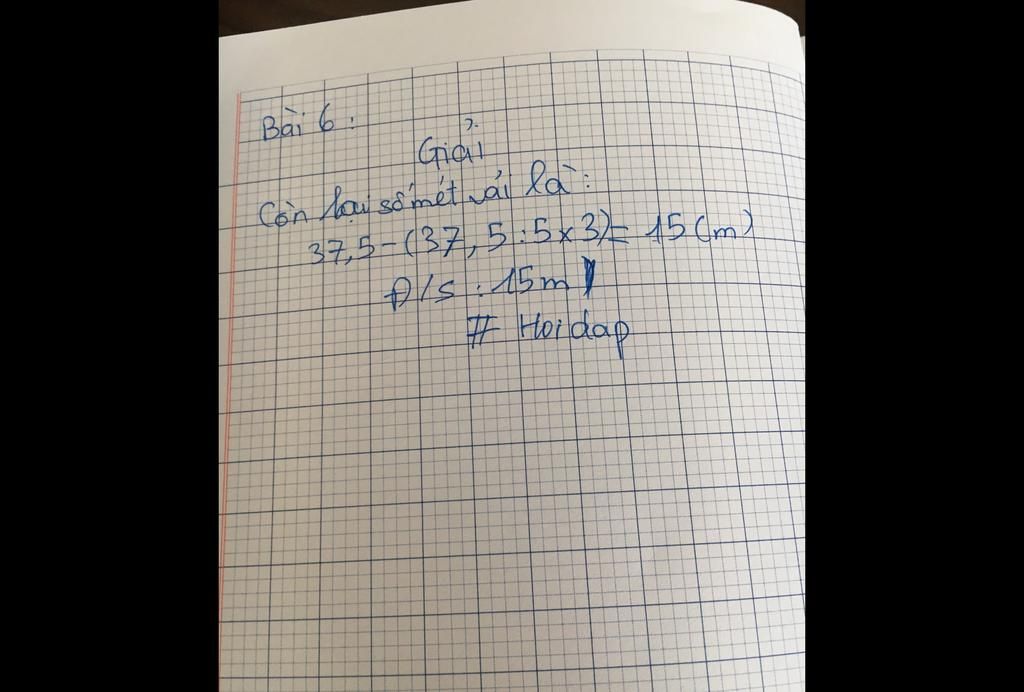 Bài 6:
Giải
Còn lại số mét vải là:
37,5 - (37,5 : 5 x 3) = 15 (m)
Đ/S : 15m
# Hoidap